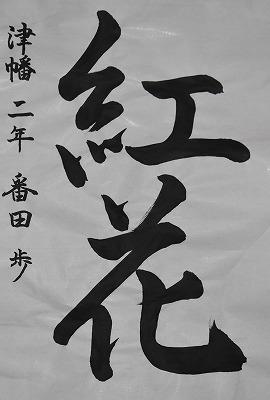 紅花
津幡 二年 番田 歩